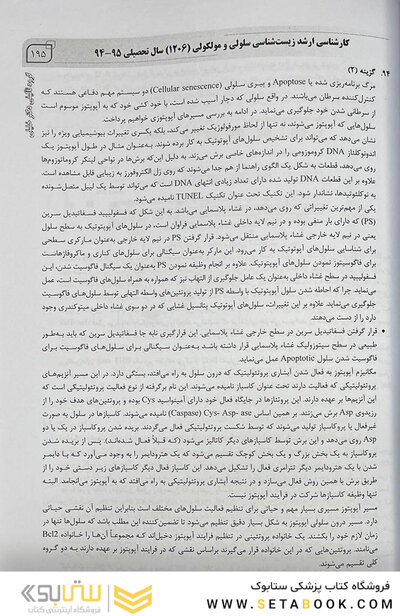 کارشناسی ارشد زیست‌شناسی سلولی و مولکولی (۱۲۰۶) سال تحصیلی ۹۵-۹۴
۱۹۵
۹۴. گزینه (۲)
مرگ برنامه‌ریزی شده یا Apoptose و پیری سلولی (Cellular senescence) دو سیستم مهم دفاعی هستند که
کنترل‌کننده سرطان می‌باشند. در واقع سلولی که دچار آسیب شده است، با خود کشی خود که به آپوپتوز موسوم است
از سرطانی شدن خود جلوگیری می‌نماید. در ادامه به بررسی مسیرهای آپوپتوزی خواهیم پرداخت.
سلول‌هایی که آپوپتوز می‌شوند، نه تنها از لحاظ مورفولوژیک تغییر می‌کند، بلکه یکسری تغییرات بیوشیمیایی ویژه را نیز
نشان می‌دهد که می‌تواند برای تشخیص سلول‌های آپوپتوتیک به کار برده شوند. به‌عنوان مثال در طول آپوپتوز یک
اندونوکلئاز DNA کروموزومی را در اندازه‌های خاصی برش می‌زند. به دلیل این‌که برش‌ها در نواحی لینکر کروماتوزوم‌ها
روی می‌دهد، قطعات به شکل یک الگوی راهنما از هم جدا می‌شوند که روی ژل الکتروفورز به زیبایی قابل مشاهده است.
علاوه بر این قطعات DNA تولید شده دارای تعداد زیادی انتهای DNA است که می‌تواند توسط یک لیبل متصل‌شونده
به نوکلئوتیدها، نشاندار شود. این تکنیک تحت عنوان تکنیک TUNEL نامیده می‌شود.
یکی از مهم‌ترین تغییراتی که روی می‌دهد، در غشاء پلاسمایی می‌باشد. به این شکل که فسفولیپید فسفاتیدیل سرین
(PS) که دارای بار منفی بوده و در نیم لایه داخلی غشاء پلاسمایی فراوان است، در سلول‌های آپوپتوتیک به سطح سلول
یعنی در نیم لایه خارجی غشاء پلاسمایی منتقل می‌شود. قرار گرفتن PS در نیم لایه خارجی به‌عنوان مارکری سطحی
برای شناسایی سلول‌های آپوپتوتیک به کار می‌رود. این مارکر به‌عنوان سیگنالی برای سلول‌های کناری و ماکروفاژهاست
برای فاگوسیتوز نمودن سلول‌های آپوپتوتیک. علاوه بر انجام وظیفه نمودن PS به‌عنوان یک سیگنال فاگوسیت شدن، این
فسفولیپید در سطح غشاء داخلی به‌عنوان یک عامل جلوگیری از التهاب نیز که همواره به همراه سلول‌های فاگوسیت است، عمل
می‌نماید. چرا که احاطه شدن سلول آپوپتوز با فاگوسیت با واسطه PS از تولید پروتئین‌های واسطه التهابی توسط سلول‌های فاگوسیت
جلوگیری می‌نماید. علاوه بر این تغییرات، سلول‌های آپوپتوتیک پتانسیل غشایی که در دو سوی غشاء داخلی میتوکندری وجود
دارد را از دست می‌دهند.
● قرار گرفتن فسفاتیدیل سرین در سطح خارجی غشاء پلاسمایی. این قرارگیری نابه جا فسفاتیدیل سرین که باید به‌طور
طبیعی در سطح سیتوزولیک غشاء پلاسمایی قرار داشته باشد به‌عنوان سیگنالی برای سلول‌های فاگوسیت برای
فاگوسیت شدن سلول Apoptotic عمل می‌نماید.
مکانیزم آپوپتوز به فعال شدن آبشاری پروتئولیتیک که درون سلول به راه می‌افتد، بستگی دارد. در این مسیر آنزیم‌های
پروتئولیتیکی که فعالیت دارند تحت عنوان کاسپاز نامیده می‌شوند. این نام برگرفته از نوع فعالیت پروتئولیتیکی است که
این آنزیم‌ها بر عهده دارند. این پروتئازها در جایگاه فعال خود دارای آمینواسید Cys بوده و پروتئین‌های هدف خود را از
رزیدوی Asp برش می‌زنند. بر همین اساس Cys- Asp- ase (Caspase) نامیده می‌شوند. کاسپازها در سلول به صورت
غیرفعال یا پروکاسپاز تولید می‌شوند که توسط شکست پروتئولیتیکی فعال می‌گردند. بریده شدن پروکاسپاز در یک یا دو
Asp روی می‌دهد و این برش توسط کاسپازهای دیگر کاتالیز می‌شود (که قبلاً فعال شده‌اند). پس از بریده شدن
پروکاسپاز به یک بخش بزرگ و یک بخش کوچک تقسیم می‌شود که یک هترودایمر را به وجود می‌آورد که با دایمر
شدن با یک هترودایمر دیگر تترامری فعال را تشکیل می‌دهد. این کاسپاز فعال دیگر کاسپازهای زیر دستی خود را از
طریق برش یا همین روش فعال می‌سازد و در نتیجه آبشاری پروتئولیتیکی به راه می‌افتد که به آپوپتوز می‌انجامد. البته
تنها وظیفه کاسپازها شرکت در فرآیند آپوپتوز نیست.
مسیر آپوپتوز مسیری بسیار مهم و حیاتی برای تنظیم فعالیت سلول‌های مختلف است بنابراین تنظیم آن نقشی حیاتی
دارد. مسیر درون سلولی آپوپتوز به شکل بسیار دقیق تنظیم می‌شود تا تضمین‌کننده این مطلب باشد که سلول‌ها تنها در
زمان لازم خود را بکشند. یک خانواده پروتئینی در تنظیم فرآیند آپوپتوز دخیل‌اند که مجموعاً آن‌ها را خانواده Bcl2
می‌نامند. پروتئین‌هایی که در این خانواده قرار می‌گیرند براساس نقشی که در فرآیند آپوپتوز بر عهده دارند به دو گروه
کلی تقسیم می‌شوند.
فروشگاه کتاب پزشکی ستابوک
www.SETABOOK.com
ستابوک
فروشگاه اینترنتی کتاب